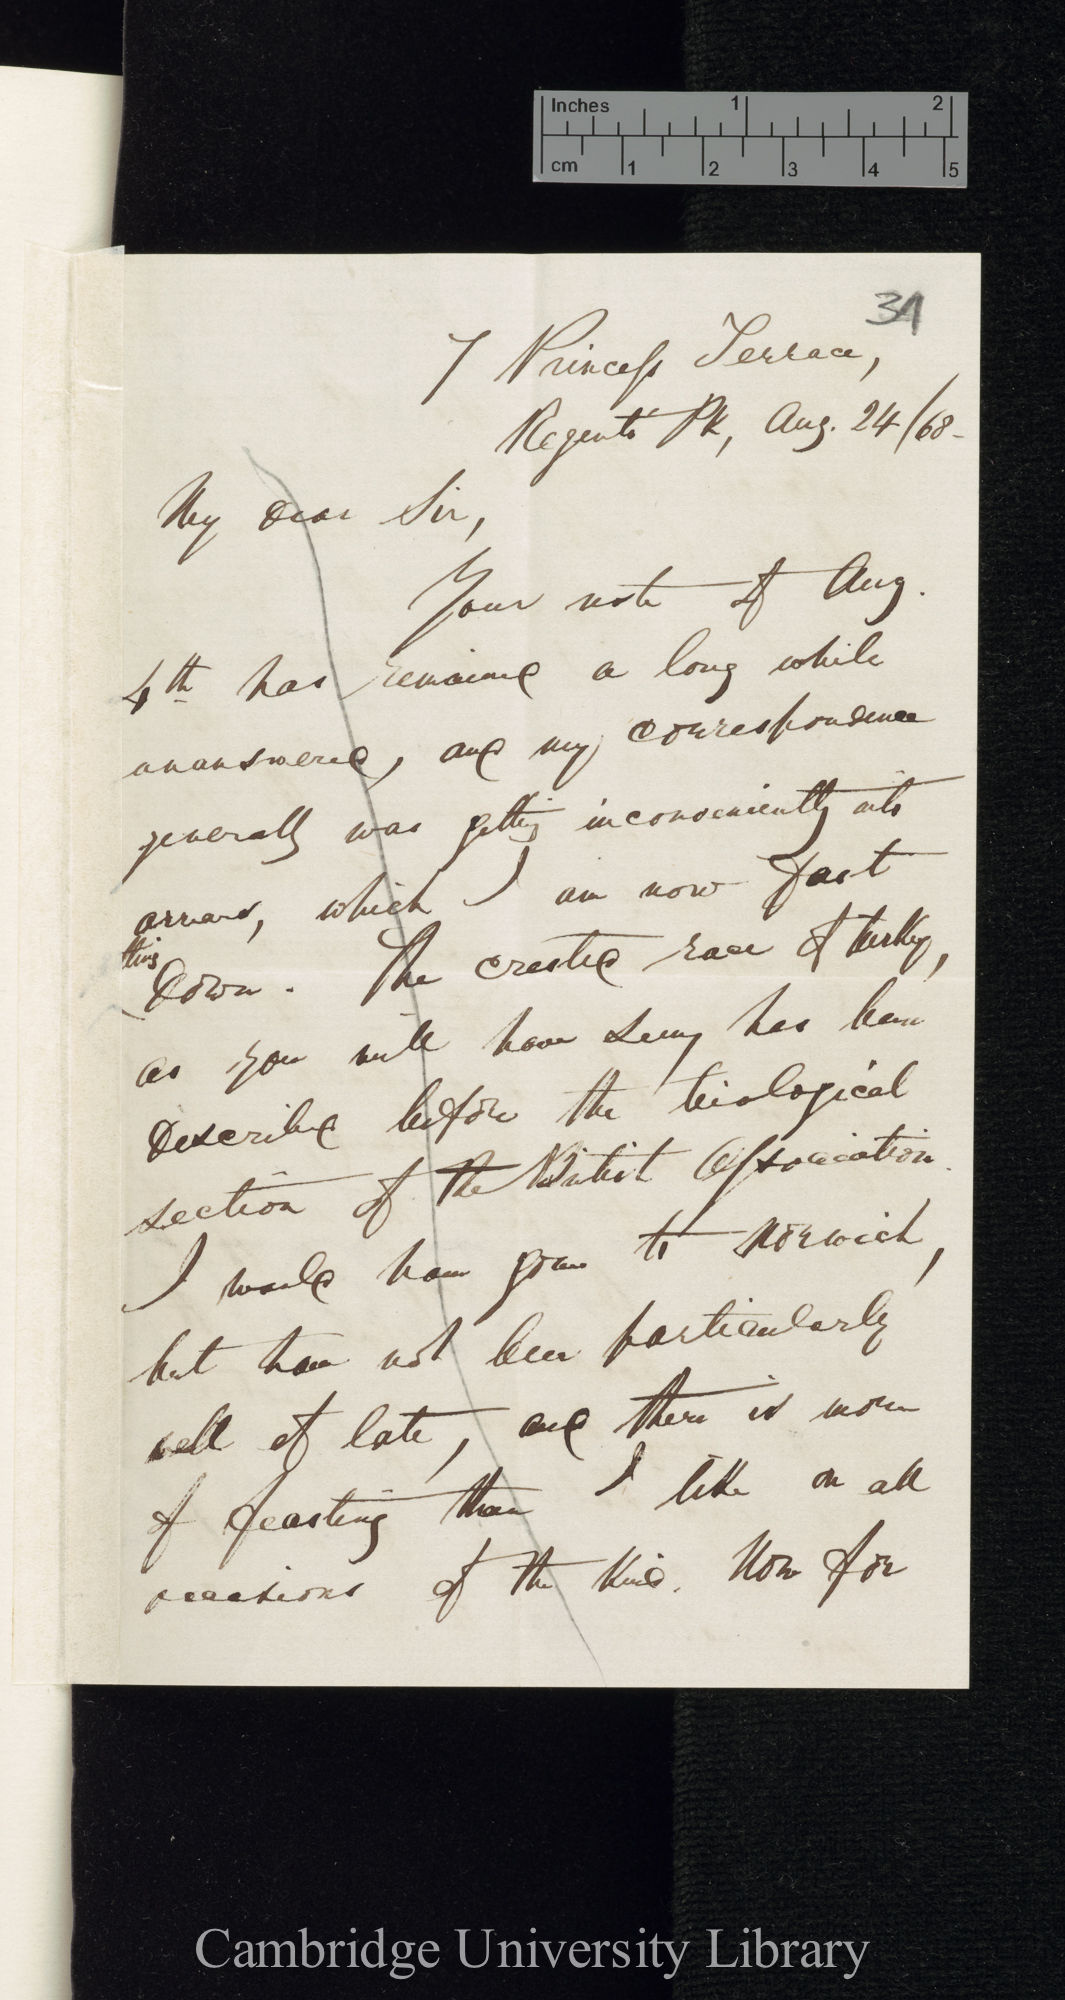 Inches 1 2
cm 1 2 3 4 5
34
7 Princess Terrace,
Regents' Pk, Aug. 24/68–
My dear Sir,
Your note of Aug.
4th has remained a long while
unanswered, and my correspondence
generally was getting inconveniently into
arrears, which I am now fast
The crested race of turkey,
down.
as you will have seen, has been
described before the biological
section of the British Association.
I would have gone to Norwich,
but have not been particularly
well of late, and there is more
of feasting than I like on all
occasions of the kind. Now for
Cambridge University Library